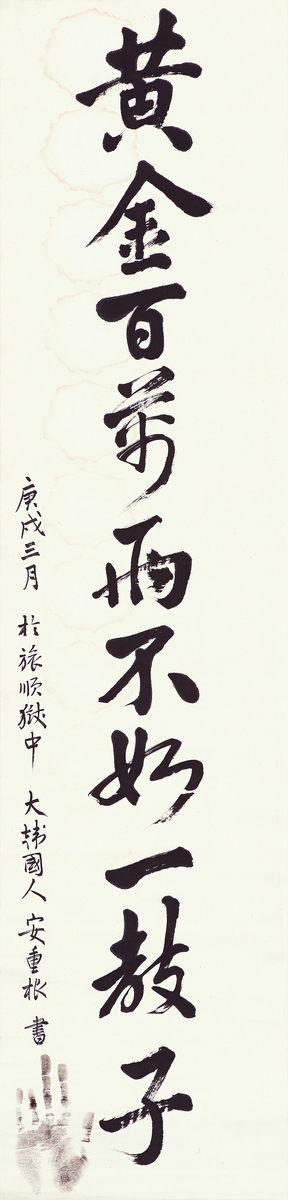 黃金百萬兩不如一教子
庚戌三月 於旅順獄中 大韓國人 安重根 書